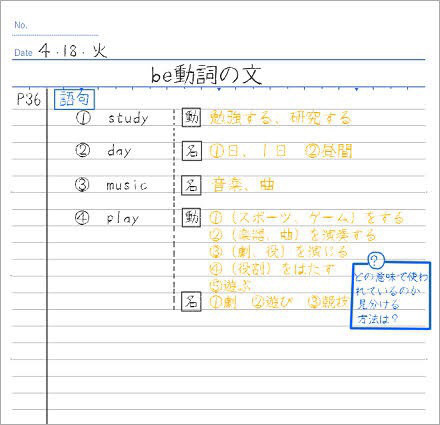 No.
Date 4・18・火
be動詞の文
P36 語句
① study 動 勉強する、研究する
② day 名 ①日、1日 ②昼間
③ music 名 音楽、曲
④ play 動 ①(スポーツ、ゲーム)をする
②(楽器、曲)を演奏する
③(劇、役)を演じる
④(役割)をはたす
⑤遊ぶ
名 ①劇 ②遊び ③競技
?
どの意味で使わ
れているのか
見分ける
方法は?